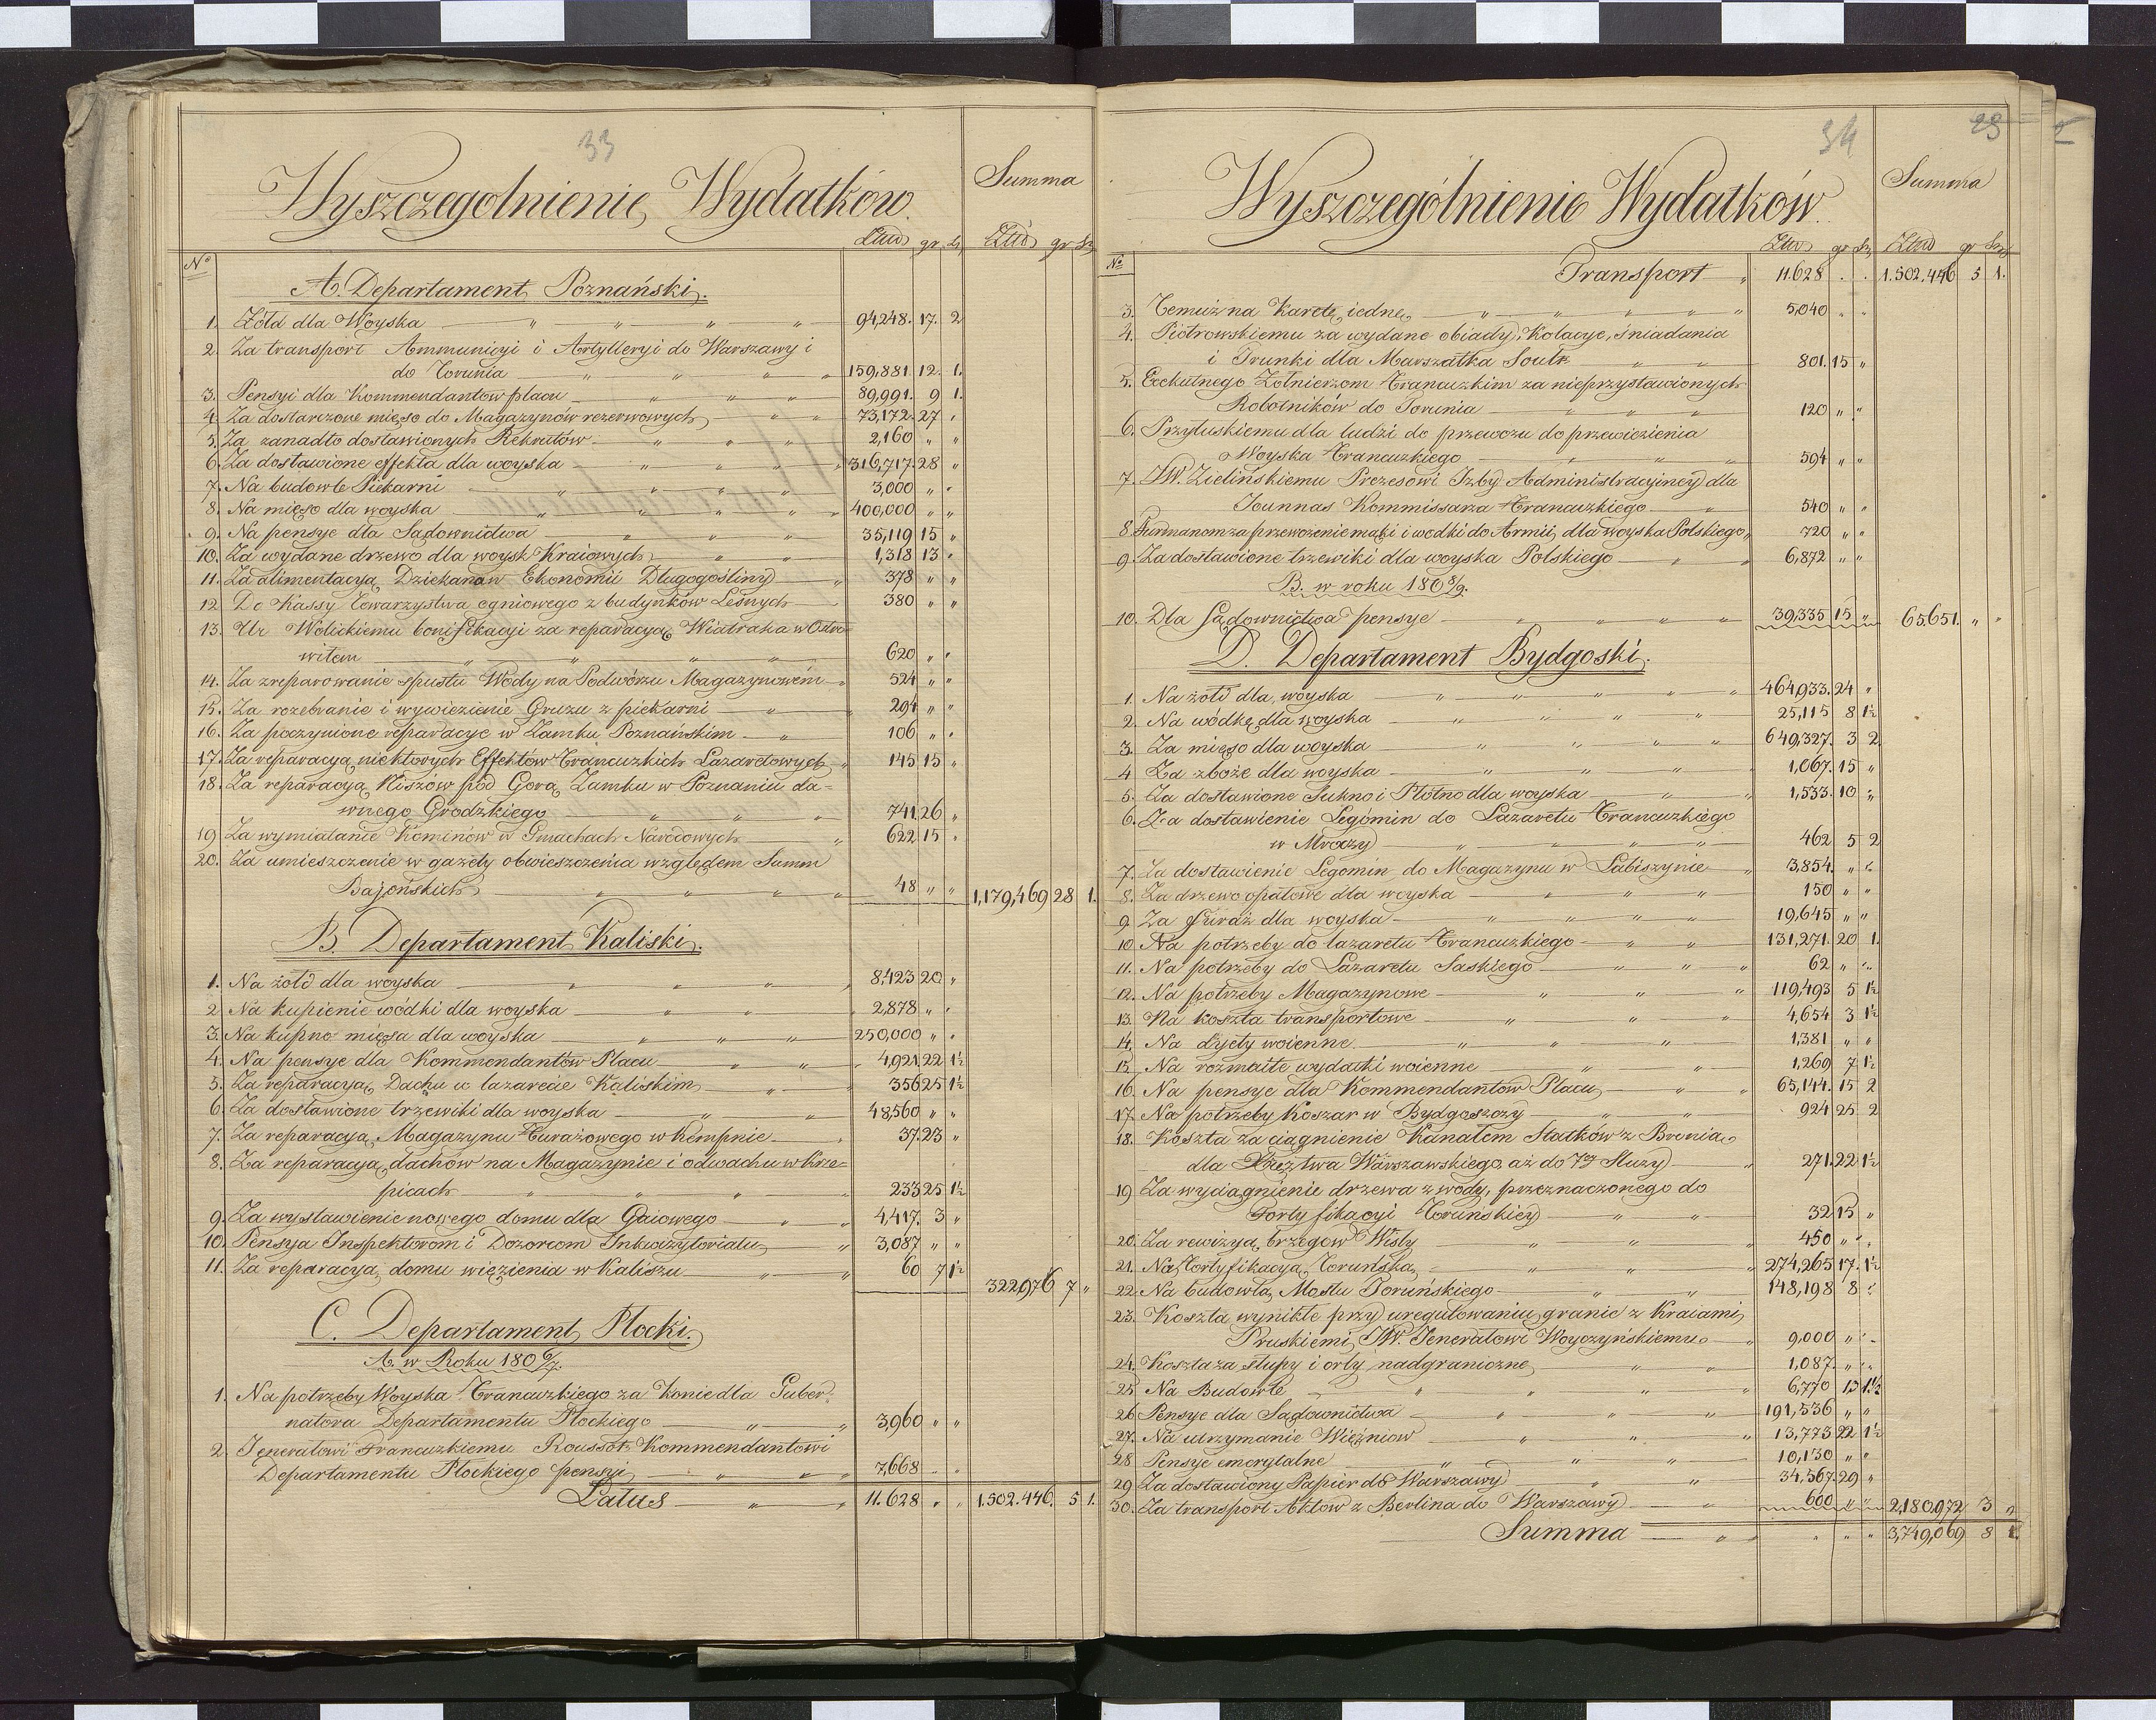 33
Wyszczegolnienie Wydatków.
Summa
Złtud gr Sz Złtud gr Sz
No
A. Departament Poznański.
1. Żołd dla Woyska 94,248. 17. 2
2. Za transport Ammunicyi i Artylleryi do Warszawy i
do Torunia 159,881 12. 1.
3. Pensyi dla Kommendantow placu 89,991. 9 1.
4. Za dostarczone mięso do Magazynów rezerwowych 73,172. 27 "
5. Za zanadto dostawionych Rekrutów 2,160 " "
6. Za dostawione effekta dla woyska 316,717. 28 "
7. Na budowle Piekarni 3,000 " "
8. Na mięso dla woyska 400,000 " "
9. Na pensye dla Sądownictwa 35,119 15 "
10. Za wydane drzewo dla woysk Kraiowych 1,318 13 "
11. Za alimentacyą Dziekanow Ekonomii Długogośliny 378 " "
12. Do Kassy Towarzystwa ogniowego z budynków Leśnych 380 " "
13. Ur Wolickiemu bonifikacyi za reparacyą Wiatraka w Ostro-
witem 620 " "
14. Za zreparowanie spustu Wody na Podwórzu Magazynowém 524 " "
15. Za rozebranie i wywiezienie Gruzu z piekarni 294 " "
16. Za poczynione reparacye w Zamku Poznańskim 106 " "
17. Za reparacyą niektorych Effektów Francuzkich Lazaretowych 145 15 "
18. Za reparacyą Niszów pod Gorą Zamku w Poznaniu da=
wnego Grodzkiego 741 26 "
19 Za wymiatanie Kominów w Gmachach Narodowych 622 15 "
20. Za umieszczenie w gazety obwieszczenia względem Summ
Bajońskich 48 " " 1,179,469 28 1.
B. Departament Kaliski.
1. Na żołd dla woyska 8,423 20 "
2 Na kupienie wódki dla woyska 2,878 " "
3. Na kupno mięsa dla woyska 250,000 " "
4. Na pensye dla Kommendantów Placu 4,921. 22 1½
5. Za reparacyą Dachu w lazarecie Kaliskim 356 25 1½
6. Za dostawione trzewiki dla woyska 48,560 " "
7. Za reparacyą Magazynu Furażowego w Kempnie 37. 23 "
8. Za reparacyą dachów na Magazynie i odwachu w Krze=
picach 233 25 1½
9. Za wystawienie nowego domu dla Gaiowego 4,417. 3 "
10. Pensya Inspektorom i Dozorcom Inkwizytoriatu 3,087 " "
11. Za reparacyą domu więzienia w Kaliszu 60 7 1½
322,976 7 "
C. Departament Płocki.
A. w Roku 180 6/7.
1. Na potrzeby Woyska Francuzkiego za konie dla Guber=
natora Departamentu Płockiego 3,960 " "
2. Jenerałowi Francuzkiemu Roussot Kommendantowi
Departamentu Płockiego pensyi 7,668 " "
Latus 11.628 " " 1.502.446. 5 1.
34
29
Wyszczególnienie Wydatków.
Summa
Złtud gr Sz Złtud gr Sz
No
Transport 11.628 . . 1.502.446 5 1.
3. Temuż na Karetę iedną 5,040 " "
4. Piotrowskiemu za wydane obiady, Kolacye, śniadania
i Trunki dla Marszałka Soult 801. 15 "
5. Exekutnego Żołnierzom Francuzkim za nieprzystawionych
Robotników do Torunia 120 " "
6. Przyłuskiemu dla ludzi do przewozu do przewiezienia
Woyska Francuzkiego 594 " "
7. JW. Zielińskiemu Prezesowi Izby Administracyiney dla
Jounnas Kommissarza Francuzkiego 540 " "
8 Furmanom za przewożenie mąki i wodki do Armii, dla woyska Polskiego 720 " "
9. Za dostawione trzewiki dla woyska Polskiego 6,872 " "
B. w roku 180 8/9.
10. Dla Sądownictwa pensye 39,335 15 " 65.651. " "
D. Departament Bydgoski.
1. Na żołd dla woyska 464,933. 24 "
2. Na wódkę dla woyska 25,115 8 1½
3. Za mięso dla woyska 649,327. 3 2
4 Za zboże dla woyska 1,067. 15 "
5. Za dostawione Sukno i Płótno dla woyska 1,533. 10 "
6. Za dostawienie Legómin do Lazaretu Francuzkiego
w Mroczy 462 5 2
7. Za dostawienie Legomin do Magazynu w Łabiszynie 3,854. " "
8. Za drzewo opałowe dla woyska 150 " "
9. Za furaż dla woyska 19,645 " "
10. Na potrzeby do lazaretu Francuzkiego 131,271. 20 1.
11. Na potrzeby do Lazaretu Saskiego 62 " "
12. Na potrzeby Magazynowe 119,493 5 1½
13. Na koszta transportowe 4,654 3 1½
14. Na dyety woienne 1,381 " "
15. Na rozmaite wydatki woienne 1,269 7 1½
16. Na pensye dla Kommendantów Placu 65,144. 15 2
17. Na potrzeby Koszar w Bydgoszczy 924 25 2
18. Koszta za ciągnienie Kanałem Statków z Brenia
dla Xięztwa Warszawskiego aż do 7ey Śluzy 271. 22 1½
19 Za wyciągnienie drzewa z wody, przeznaczonego do
Fortyfikacyi Toruńskiey 32 15 "
20. Za rewizyą brzegow Wisły 450 " "
21. Na Fortyfikacyą Toruńską 274,265 17. 1½
22. Na budowlą Mostu Toruńskiego 148,198 8 "
23. Koszta wynikłe przy uregulowaniu granic z Kraiami
Pruskiemi, JW. Jenerałowi Woyczyńskiemu 9,000 " "
24. Koszta za słupy i orły nadgraniczne 1,087. " "
25. Na Budowle 6,770 13 1½
26 Pensye dla Sądownictwa 191,536 " "
27. Na utrzymanie Więźniow 13,773 22 1½
28 Pensye emerytalne 10,130 " "
29 Za dostawiony Papier do Warszawy 34,567. 29 "
30. Za transport Aktow z Berlina do Warszawy 600 " " 2,180,972 3 "
Summa " " " 3,749,069 8 1.